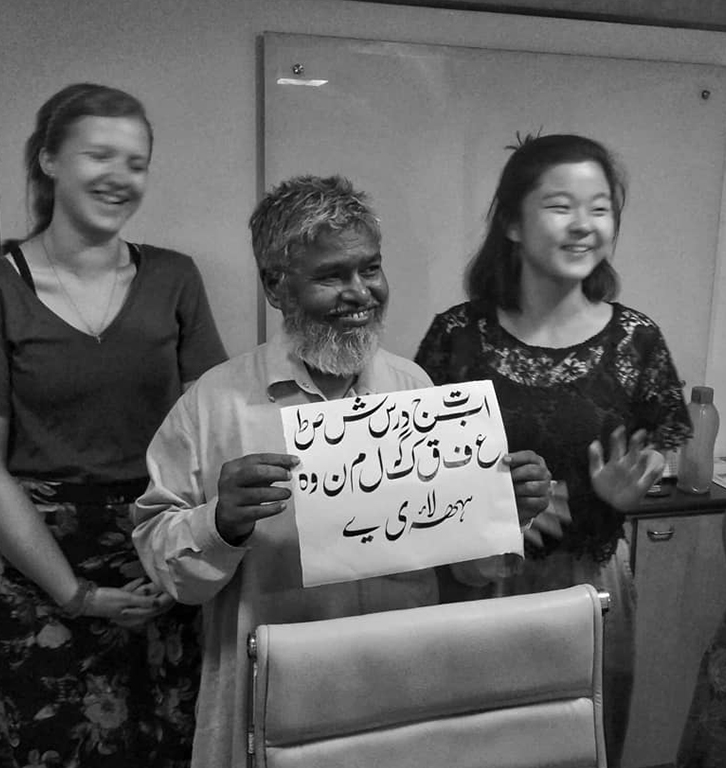 ا ب ت ج د ر س ش ص ط
ع ف ق ک گ ل م ن و ہ
ھ ء لا ی ے